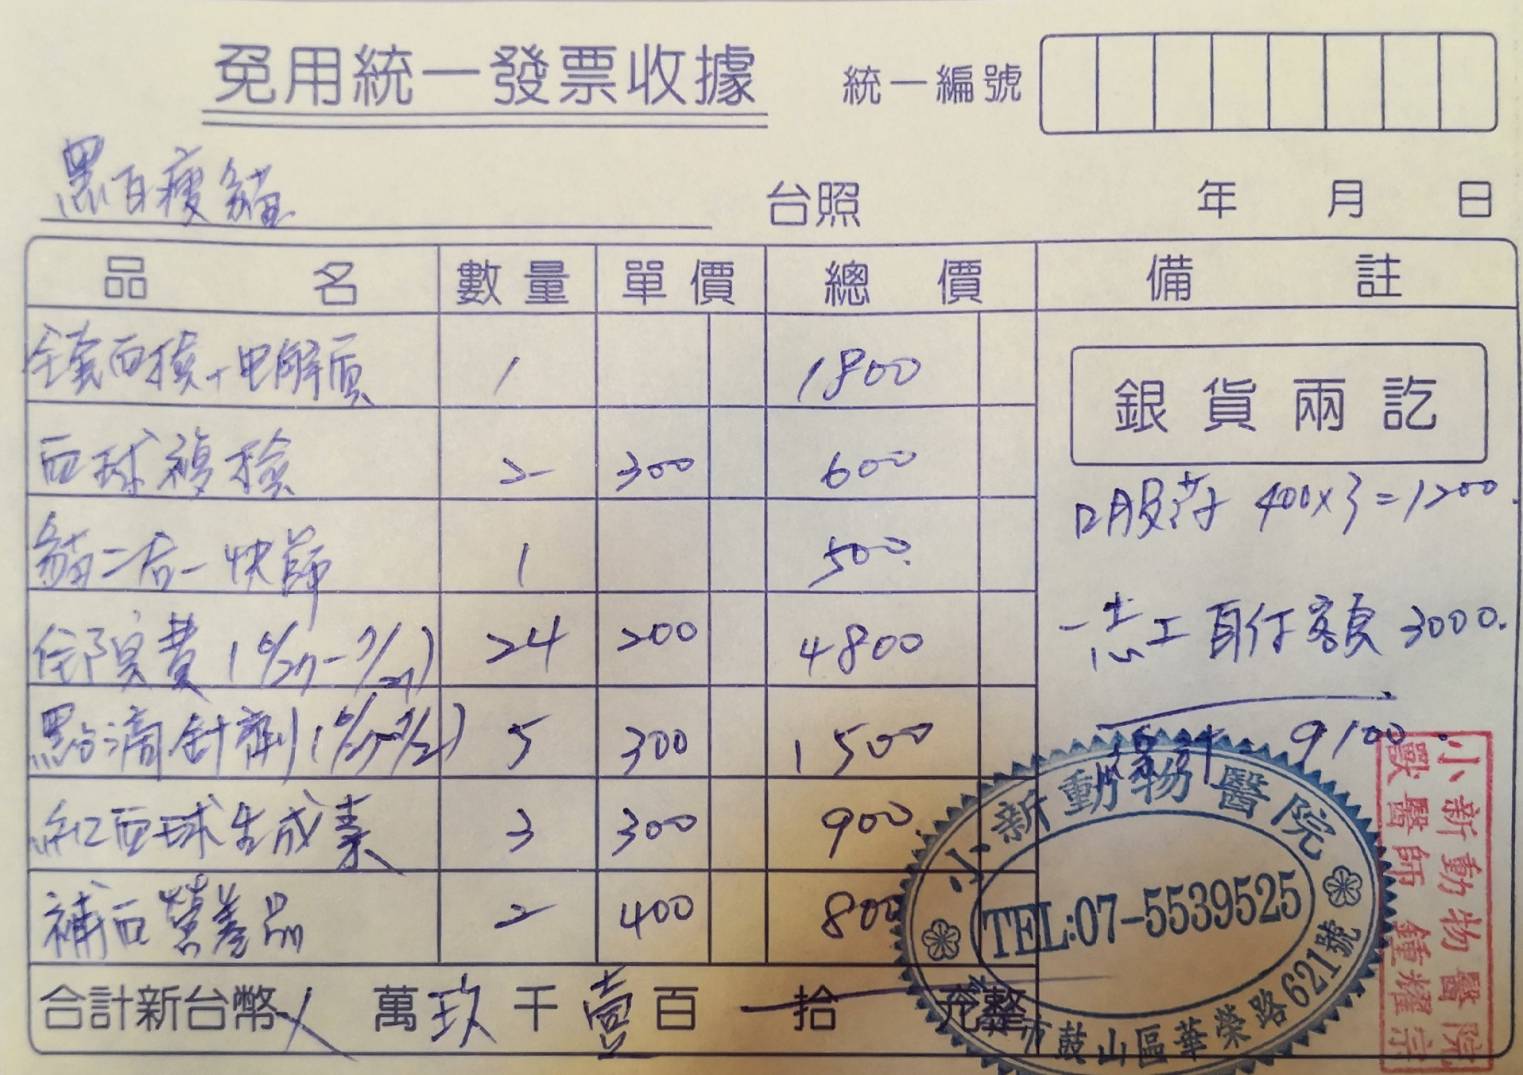 免用統一發票收據 統一編號
黑白瘦貓 台照 年 月 日
品名 數量 單價 總價 備註
全套血檢+电解質 1 1800
銀貨兩訖
血球複檢 2 300 600
口服药 400x3=1200.
貓二合一快篩 1 500.
住院費 (6/27-7/21) 24 200 4800
-志工自付額 3000.
點滴針劑 5 300 1500
總計 9100.
紅血球生成素 3 300 900.
補血營養品 2 400 800
合計新台幣 萬玖千壹百 拾 元整
小新動物醫院
TEL:07-5539525
市鼓山區華榮路621號
小新動物醫院
獸醫師 鍾耀宗